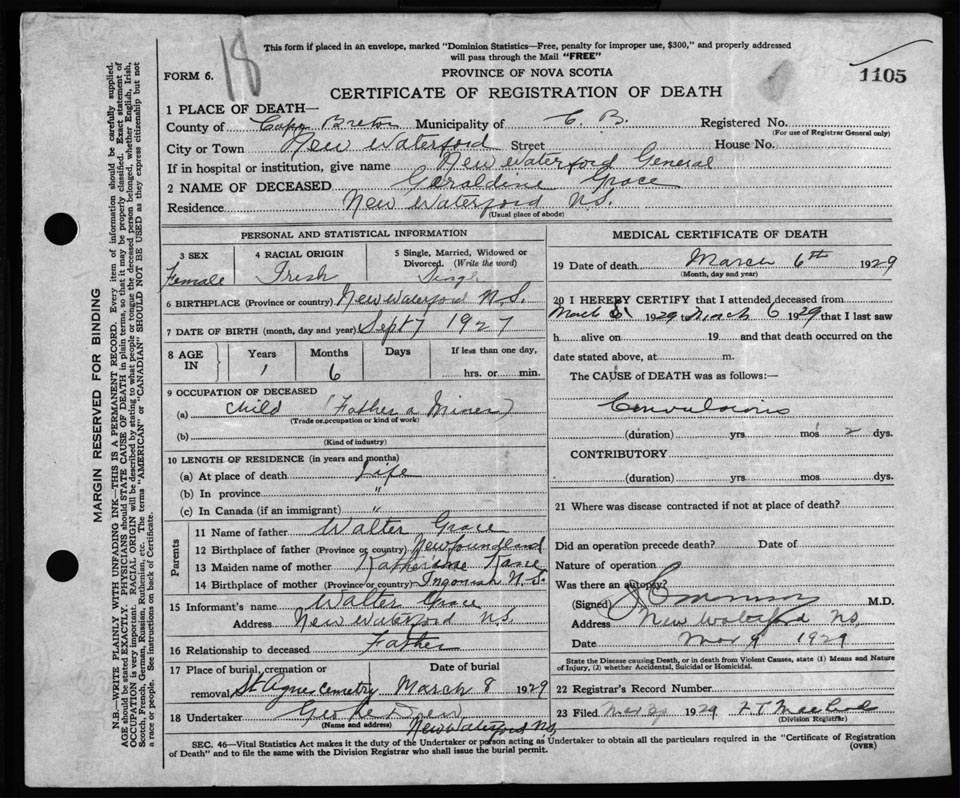 18
This form if placed in an envelope, marked "Dominion Statistics—Free, penalty for improper use, $300," and properly addressed
will pass through the Mail "FREE"
FORM 6.
PROVINCE OF NOVA SCOTIA
1105
CERTIFICATE OF REGISTRATION OF DEATH
1 PLACE OF DEATH—
County of Cape Breton Municipality of C. B. Registered No.
(For use of Registrar General only)
City or Town New Waterford Street House No.
If in hospital or institution, give name New Waterford General
2 NAME OF DECEASED Geraldine Grace
Residence New Waterford N.S.
(Usual place of abode)
PERSONAL AND STATISTICAL INFORMATION
3 SEX 4 RACIAL ORIGIN 5 Single, Married, Widowed or
Divorced. (Write the word)
Female Irish Single
6 BIRTHPLACE (Province or country) New Waterford N.S.
7 DATE OF BIRTH (month, day and year) Sept 7 1927
8 AGE IN Years Months Days If less than one day,
1 6 hrs. or min.
9 OCCUPATION OF DECEASED
(a) Child (Father a Miner)
(Trade or occupation or kind of work)
(b)
(Kind of industry)
10 LENGTH OF RESIDENCE (in years and months)
(a) At place of death Life
(b) In province "
(c) In Canada (if an immigrant) "
Parents
11 Name of father Walter Grace
12 Birthplace of father (Province or country) Newfoundland
13 Maiden name of mother Katherine Kane
14 Birthplace of mother (Province or country) Ingonish N.S.
15 Informant's name Walter Grace
Address New Waterford N.S.
16 Relationship to deceased Father
17 Place of burial, cremation or Date of burial
removal St Agnes Cemetry March 8 1929
18 Undertaker
(Name and address) New Waterford N.S.
MEDICAL CERTIFICATE OF DEATH
19 Date of death March 6th 1929
(Month, day and year)
20 I HEREBY CERTIFY that I attended deceased from
March 1929 to March 6 1929 that I last saw
h alive on 19 and that death occurred on the
date stated above, at m.
The CAUSE of DEATH was as follows:—
Convulsions
(duration) yrs mos 2 dys.
CONTRIBUTORY
(duration) yrs. mos. dys.
21 Where was disease contracted if not at place of death?
Did an operation precede death? Date of
Nature of operation
Was there an autopsy?
(Signed) M.D.
Address New Waterford N.S.
Date Mar 9 1929
State the Disease causing Death, or in death from Violent Causes, state (1) Means and Nature
of Injury, (2) Whether Accidental, Suicidal or Homicidal.
22 Registrar's Record Number
23 Filed 1929
(Division Registrar)
SEC. 46—Vital Statistics Act makes it the duty of the Undertaker or person acting as Undertaker to obtain all the particulars required in the "Certificate of Registration
of Death" and to file the same with the Division Registrar who shall issue the burial permit.
(OVER)
MARGIN RESERVED FOR BINDING
N.B.—WRITE PLAINLY WITH UNFADING INK—THIS IS A PERMANENT RECORD. Every item of information should be carefully supplied.
AGE should be stated EXACTLY. PHYSICIANS should STATE CAUSE OF DEATH in plain terms, so that it may be properly classified. Exact statement of
OCCUPATION is very important. RACIAL ORIGIN will be described by stating to what people or tongue the deceased person belonged, whether English, Irish,
Scotch, French, German, Russian, Ruthenian, etc. The terms "AMERICAN" or "CANADIAN" SHOULD NOT BE USED as they express citizenship but not
a race or people. See instructions on back of Certificate.